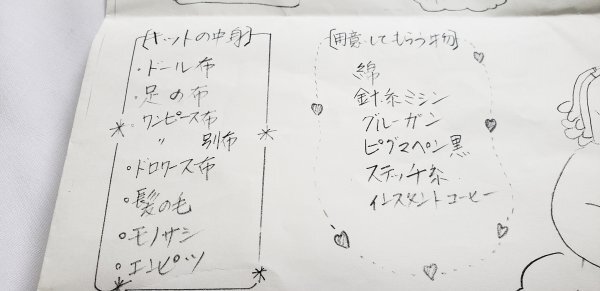 [キットの中身]
・ドール布
・足の布
・ワンピース布
〃 別布
・ドロワース布
・髪の毛
・モノサシ
・エンピツ
[用意してもらう物]
綿
針糸ミシン
グルーガン
ピグマペン黒
ステッチ糸
インスタントコーヒー